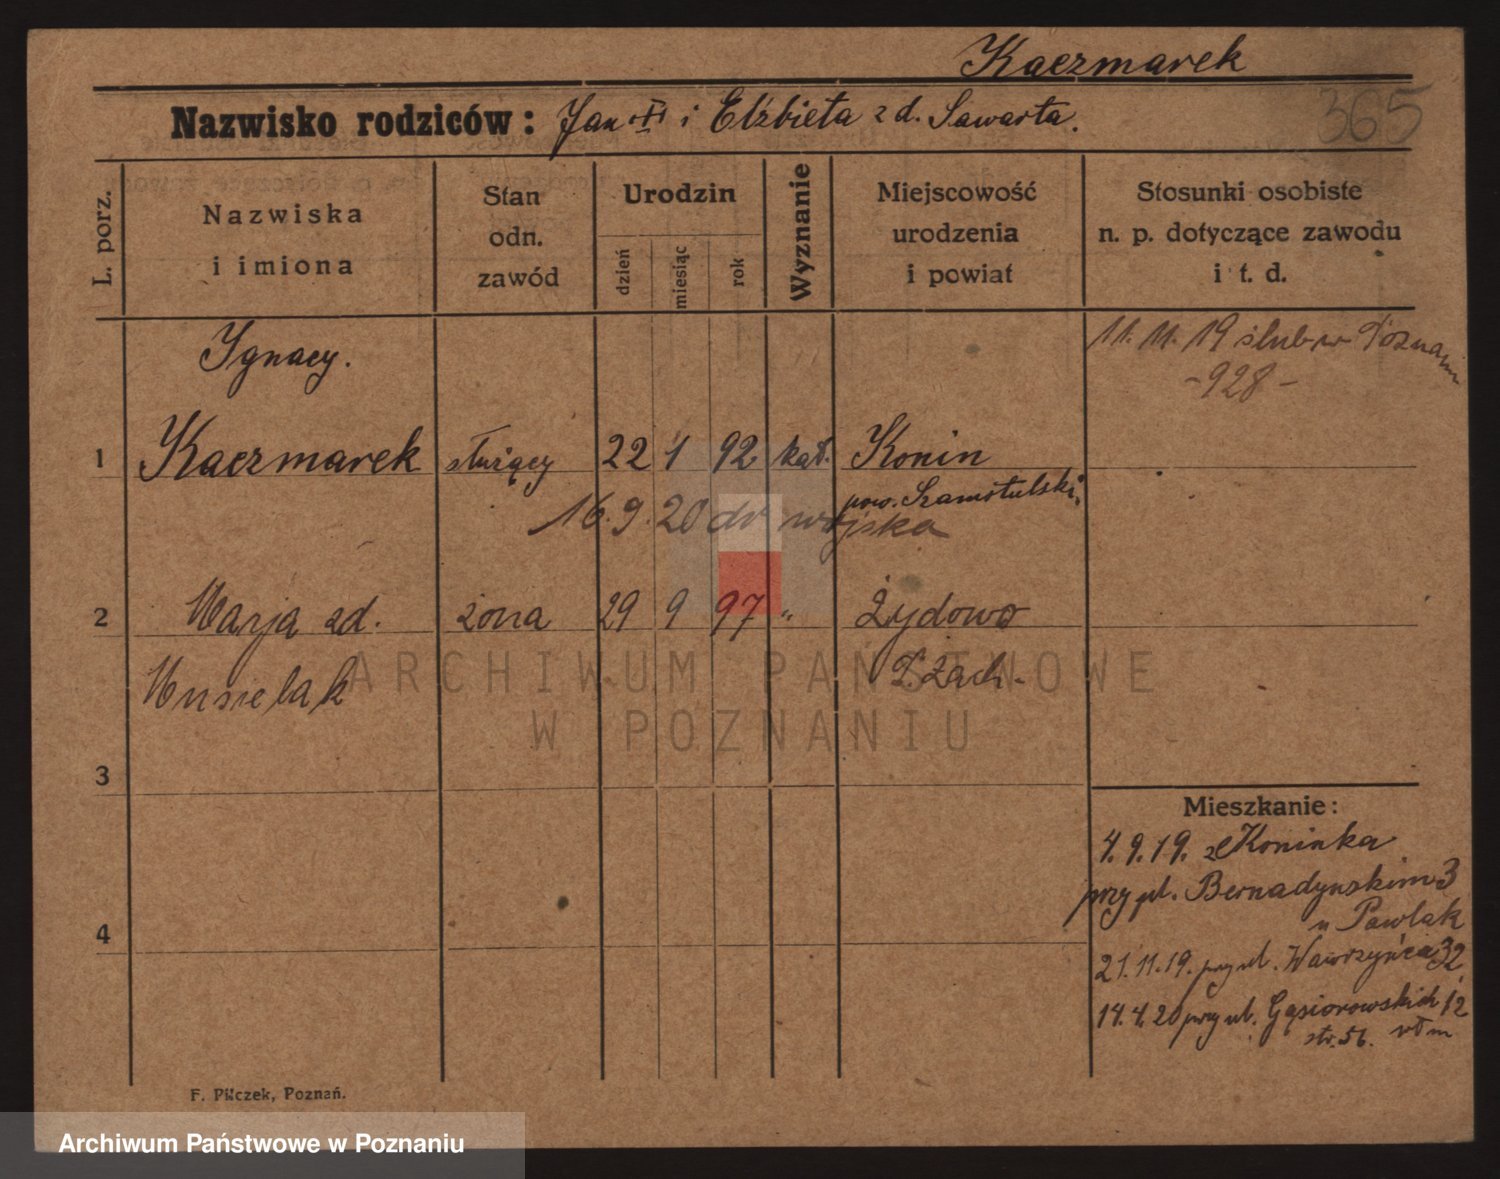 Kaczmarek
365
Nazwisko rodziców: Jan i Elżbieta z d. Sawarta.
L. porz.
Nazwiska
i imiona
Stan
odn.
zawód
Urodzin
dzień
miesiąc
rok
Wyznanie
Miejscowość
urodzenia
i powiat
Stosunki osobiste
n. p. dotyczące zawodu
i t. d.
11. 11. 19 ślub w Poznaniu
-928-
Ignacy.
1 Kaczmarek służący 22 1 92 kat. Konin
pow. Szamotulski.
16. 9. 20 do wojska
2 Marja zd. żona 29 9 97 " Żydowo
Musielak P. Zach.
3
4
Mieszkanie:
4. 9. 19. z Koninka
przy pl. Bernadynskim 3
u Pawlak
21. 11. 19. przy ul. Wawrzyńca 32
14. 4. 20 przy ul. Gąsiorowskich 12
str. 56.
F. Pilczek, Poznań.
ARCHIWUM PAŃSTWOWE
W POZNANIU
Archiwum Państwowe w Poznaniu